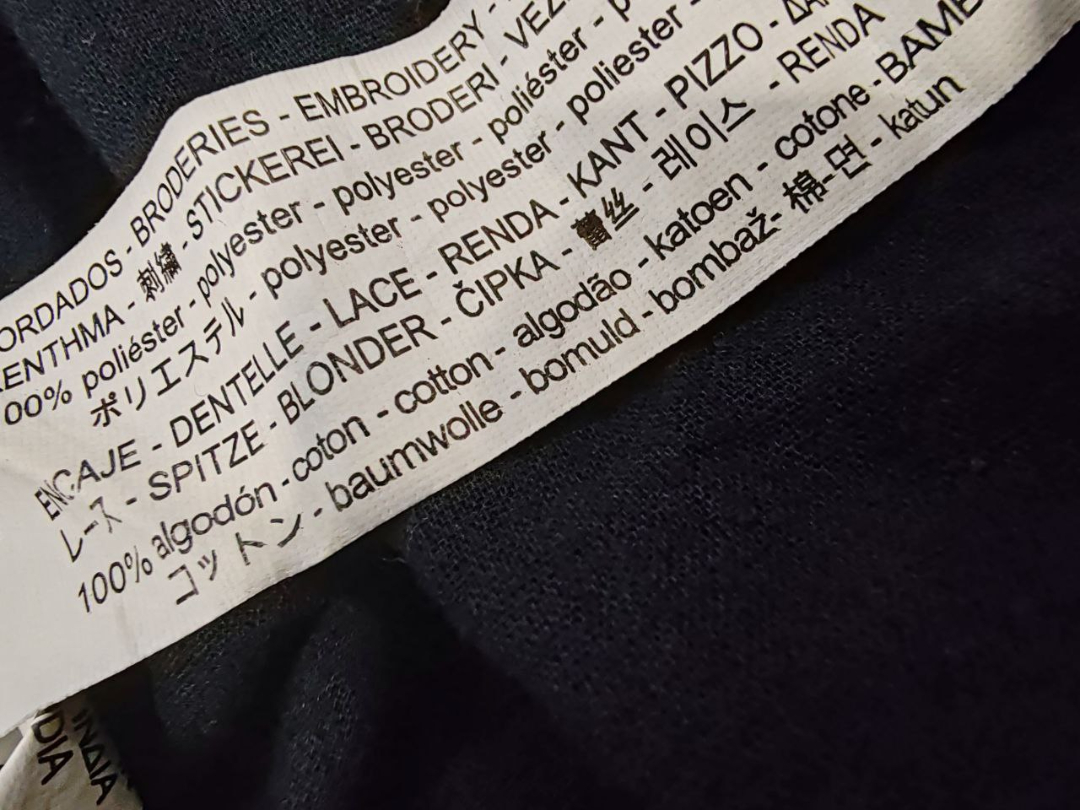 BORDADOS - BRODERIES - EMBROIDERY -
刺繍 - STICKEREI - BRODERI -
100% poliéster - polyester - polyester - poliéster -
ポリエステル - polyester - polyester - poliester -
ENCAJE - DENTELLE - LACE - RENDA - KANT - PIZZO -
レース - SPITZE - BLONDER - ČIPKA - 蕾丝 - 레이스 - RENDA
100% algodón - coton - cotton - algodão - katoen - cotone -
コットン - baumwolle - bomuld - bombaž - 棉 - 면 - katun
INDIA